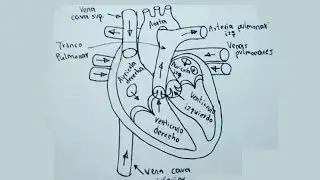 vena
cava sup.
Aorta
Arteria pulmonar
izq.
Tronco
Pulmonar
Venas
pulmonares
Auricula
derecha
Auricula
izq
Ventriculo
izquierdo
Ventriculo
derecho
Vena cava